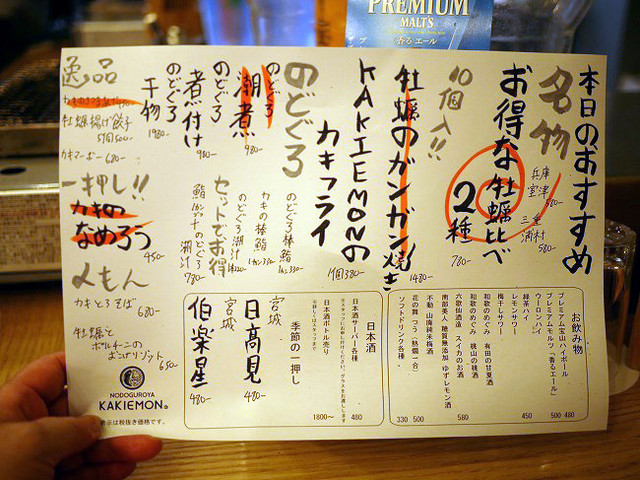 PREMIUM
MALT'S
香るエール
本日のおすすめ
名物
お得な牡蠣比べ
2種
780-
兵庫
室津
580-
三重
浦村
580-
10個入!!
牡蠣のガンガン焼き
1480-
KAKIEMONの
カキフライ
1個380-
のどぐろ
のどぐろ
潮煮
980-
のどぐろ
煮付け
980-
のどぐろ
干物
1980-
のどぐろ棒鮨
1カン330-
カキの棒鮨
1カン330-
のどぐろ潮汁
セットでお得
潮汁
780-
逸品
牡蠣揚げ餃子
5個500-
カキマーボー 680-
一押し!!
カキの
なめろう
450-
〆もん
カキとろそば
680-
牡蠣と
ポルチーニの
650-
NODOGUROYA
KAKIEMON
表示は税抜き価格です。
お飲み物
プレミアム金山ハイボール 480
プレミアムモルツ「香るエール」 500
ウーロンハイ
緑茶ハイ
レモンサワー
梅干しサワー
450
和歌のめぐみ 有田の甘夏酒
和歌のめぐみ 桃山の桃酒
六歌仙酒造 スイカのお酒
南部美人 糖質無添加 ゆずレモン酒
580
不動 山廃純米梅酒
花の舞 つぅ(熱燗一合) 500
ソフトドリンク各種 330
日本酒
日本酒サーバー各種 480
日本酒ボトル売り 1800〜
季節の一押し
宮城
日高見
480-
宮城
伯楽星
480-